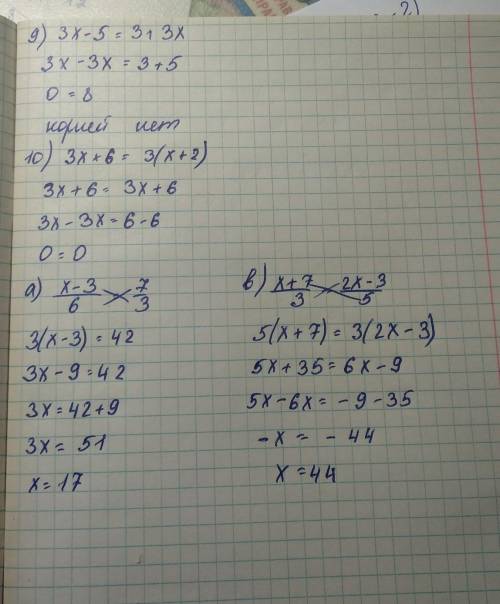 2)
9) 3x-5 = 3+3x
3x-3x = 3+5
0 = 8
корней нет
10) 3x+6 = 3(x+2)
3x+6 = 3x+6
3x-3x = 6-6
0 = 0
а) x-3/6 7/3
3(x-3) = 42
3x-9 = 42
3x = 42+9
3x = 51
x = 17
в) x+7/3 2x-3/5
5(x+7) = 3(2x-3)
5x+35 = 6x-9
5x-6x = -9-35
-x = -44
x = 44